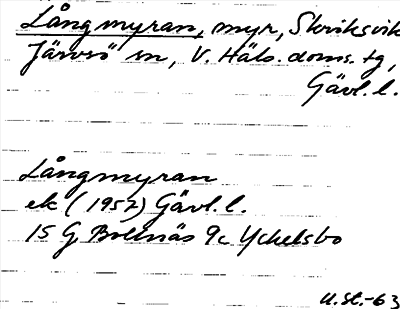 Långmyran, myr, Skriksvik
Järvsö sn, V. Häls. doms. tg,
Gävl. l.
Långmyran
ek (1957) Gävl. l.
15 G Bollnäs 9c Yckelsbo
U.St.-63